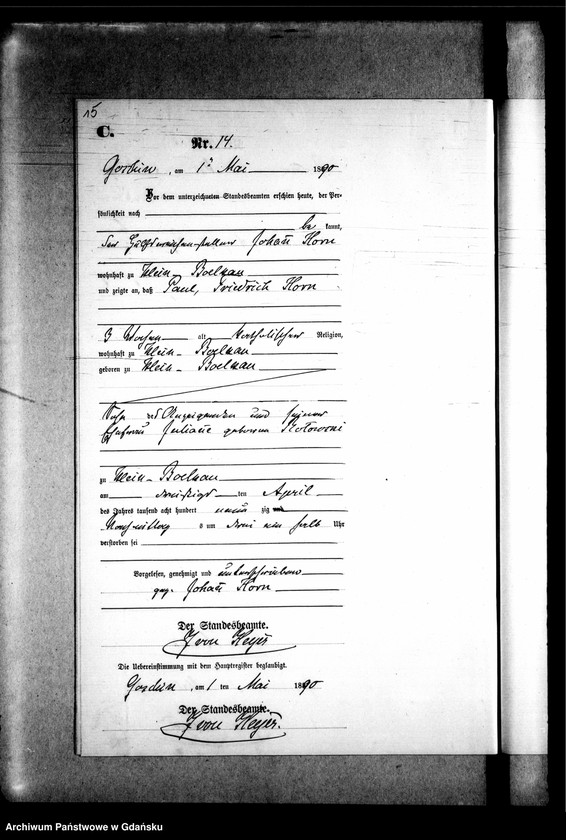 15
C.
Nr. 14.
am 1 Mai 1890
Vor dem unterzeichneten Standesbeamten erschien heute, der Per-
sönlichkeit nach
be kannt,
der Johann Korn
wohnhaft zu Klein-Boelkau
und zeigte an, daß Paul, Friedrich Korn
3 Wochen alt katholischer Religion,
wohnhaft zu Klein-Boelkau
geboren zu Klein-Boelkau
Sohn des Anzeigenden und seiner
Ehefrau Juliane geborenen
zu Klein-Boelkau
am dreißigsten April
des Jahres tausend acht hundert neun zig
Nachmittag s um drei ein halb Uhr
verstorben sei
Vorgelesen, genehmigt und unterschrieben
gez. Johann Korn
Der Standesbeamte.
J von Heyer
Die Uebereinstimmung mit dem Hauptregister beglaubigt.
am 1 ten Mai 1890
Der Standesbeamte.
J von Heyer.
Archiwum Państwowe w Gdańsku